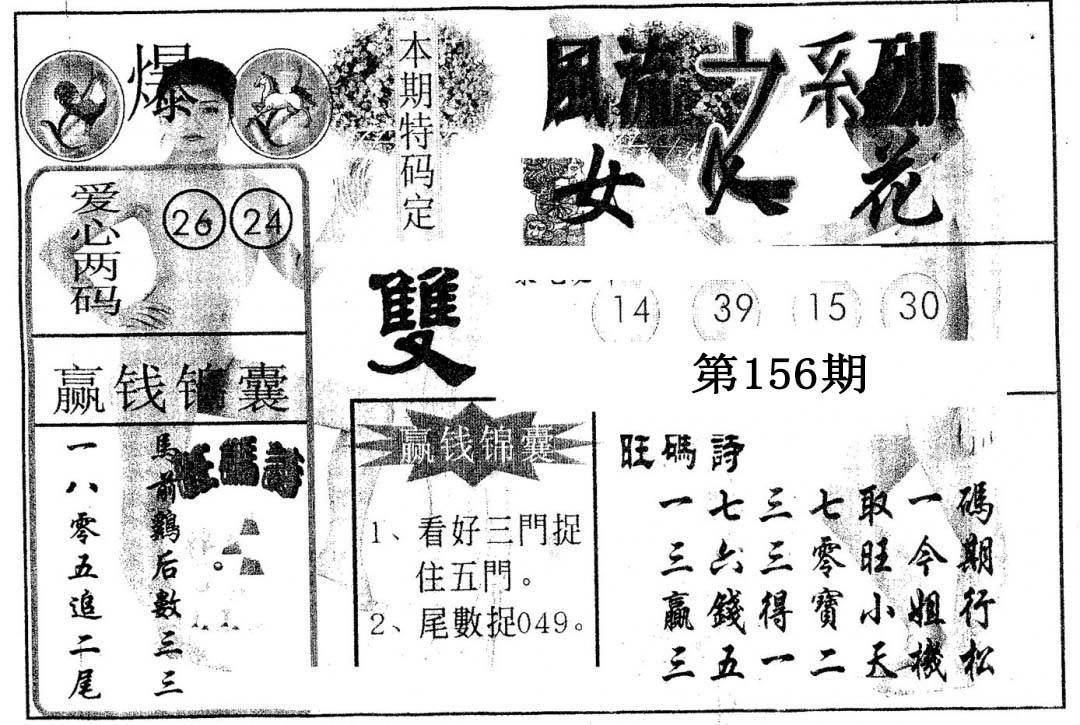 爆
本期特码定
雙
風流女人花
之系列
爱心两码
26 24
14 39 15 30
第156期
赢钱锦囊
馬前鷄后數三三
一八零五追二尾
赢钱锦囊
1、看好三門捉
住五門。
2、尾數捉049。
旺碼詩
碼期行松
一今姐機
取旺小天
七零寶二
三三得一
七六錢五
一三赢三